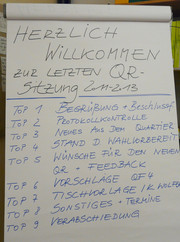 HERZLICH
WILLKOMMEN
ZUR LETZTEN QR-
SITZUNG
TOP 1 BEGRÜßUNG + Beschlussf.
TOP 2 PROTOKOLLKONTROLLE
TOP 3 NEUES AUS DEM QUARTIER
TOP 4 STAND D WAHLVORBEREIT.
TOP 5 WÜNSCHE FÜR DEN NEUEN
QR + FEEDBACK
TOP 6 VORSCHLÄGE QF4
TOP 7 TISCHVORLAGE
TOP 8 SONSTIGES + TERMINE
TOP 9 VERABSCHIEDUNG